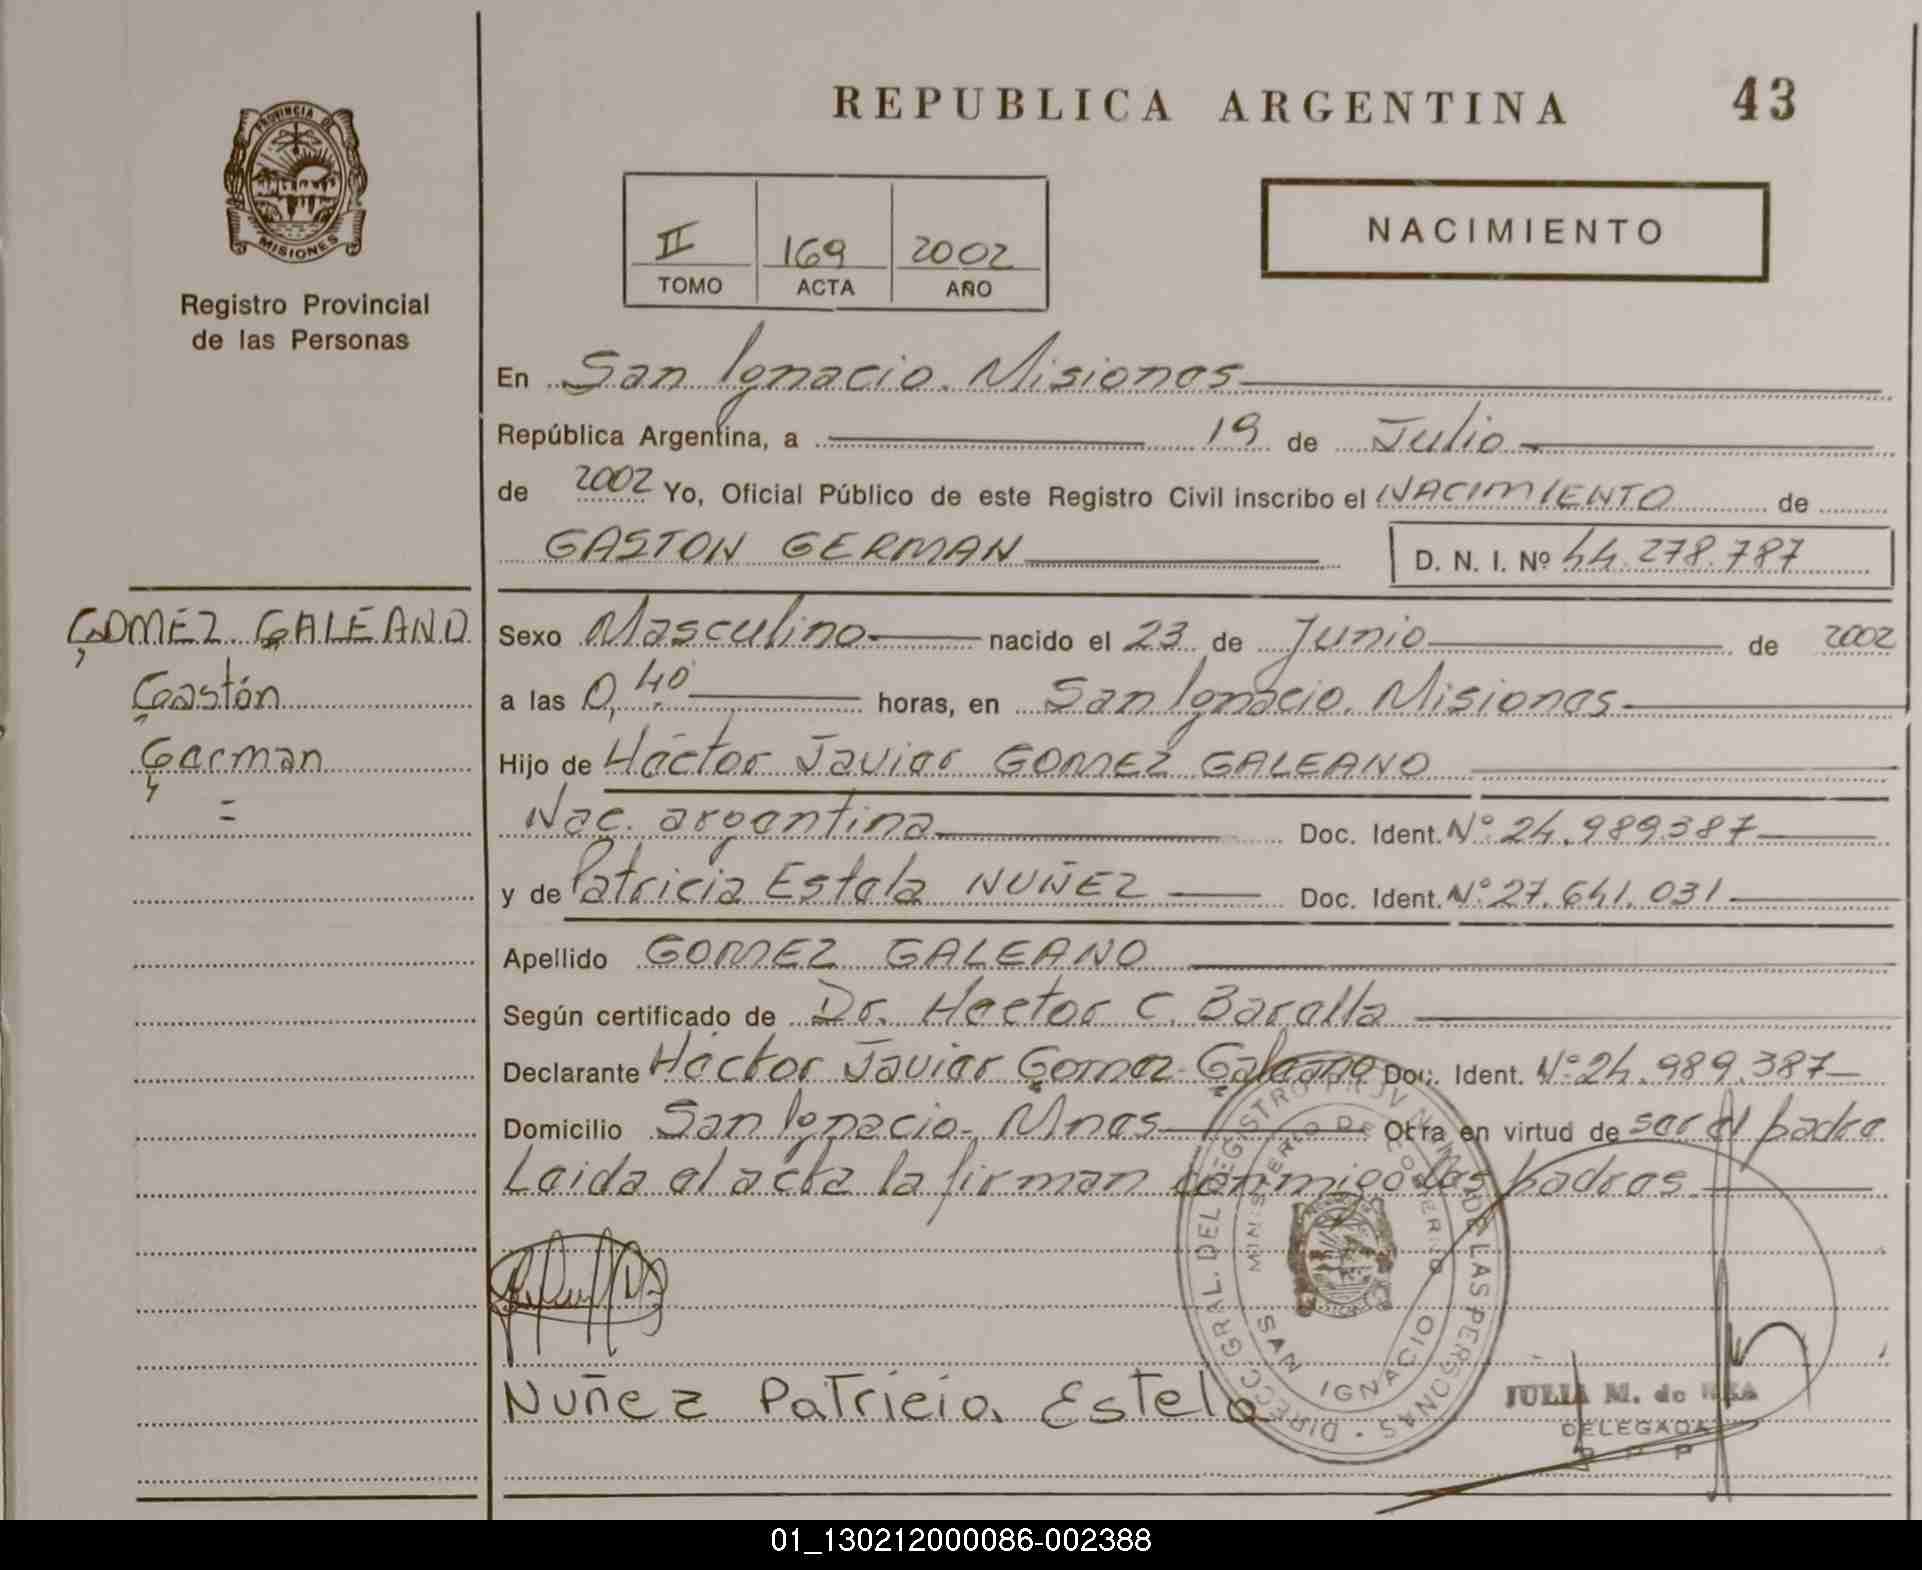 REPUBLICA ARGENTINA 43
PROVINCIA DE
MISIONES
Registro Provincial
de las Personas
II 169 2002
TOMO ACTA AÑO
NACIMIENTO
En San Ignacio. Misiones
República Argentina, a 19 de Julio
de 2002 Yo, Oficial Público de este Registro Civil inscribo el NACIMIENTO de
GASTON GERMAN D. N. I. Nº 44.278.787
GOMEZ GALEANO
Gastón
German
=
Sexo Masculino nacido el 23 de Junio de 2002
a las 0,40 horas, en San Ignacio. Misiones
Hijo de Héctor Javier GOMEZ GALEANO
Nac. argentina Doc. Ident. Nº 24.989.387
y de Patricia Estela NUÑEZ Doc. Ident. Nº 27.641.031
Apellido GOMEZ GALEANO
Según certificado de Dr. Hector C. Baralla
Declarante Héctor Javier Gomez Galeano Doc. Ident. Nº 24.989.387
Domicilio San Ignacio. Mnes Otra en virtud de ser el padre
Leida el acta la firman conmigo los padres
Nuñez Patricia Estela
DIRECC. GRAL. DEL REGISTRO PROVINCIAL DE LAS PERSONAS
MINISTERIO DE GOBIERNO
SAN IGNACIO
JULIA M. de
DELEGADA
R P P
01_130212000086-002388